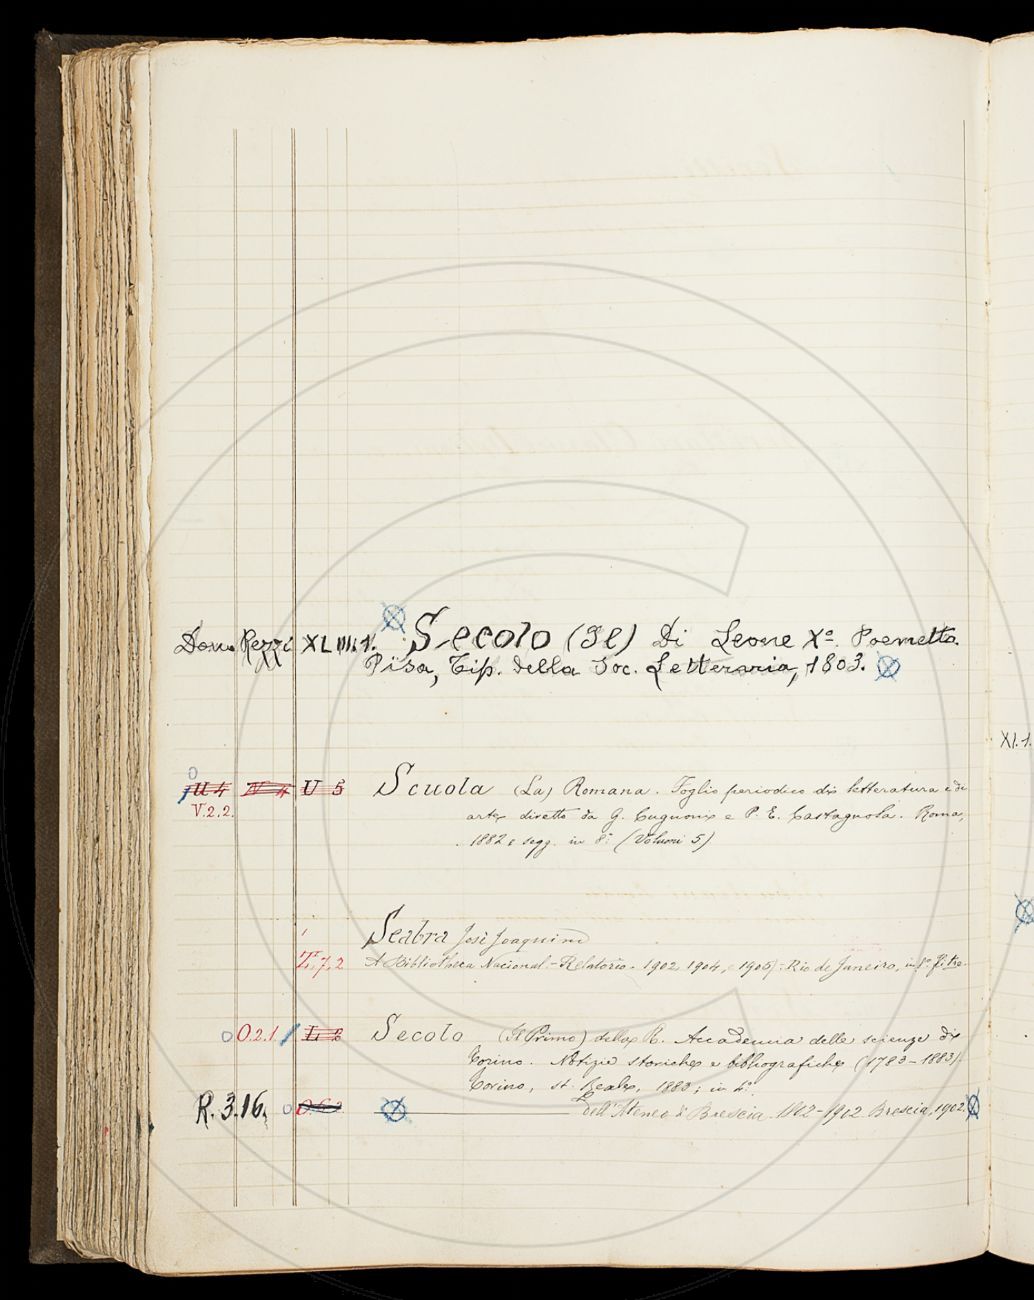 Dom. Rezzi XL III. 1. Secolo (Il) Di Leone Xº. Poemetto.
Pisa, Tip. della Soc. Letteraria, 1803.
U 4 N 4 U 5 Scuola (La) Romana. Foglio periodico di letteratura e di
V. 2. 2. arte diretto da G. Cugnoni e P. E. Castagnola. Roma,
1882 e segg. in 8º (Volumi 5)
Seabra José Joaquim
7, 2 A Bibliotheca Nacional - Relatorio. 1902, 1904, 1906. Rio de Janeiro, in
O. 2. 1. L 2 Secolo (Il Primo) della R. Accademia delle scienze di
Torino. Notizie storiche e bibliografiche (1783-1883).
Torino, st. Reale, 1883; in 4º.
R. 3. 16. dell'Ateneo di Brescia. 1802-1902 Brescia, 1902.
XI. 1.